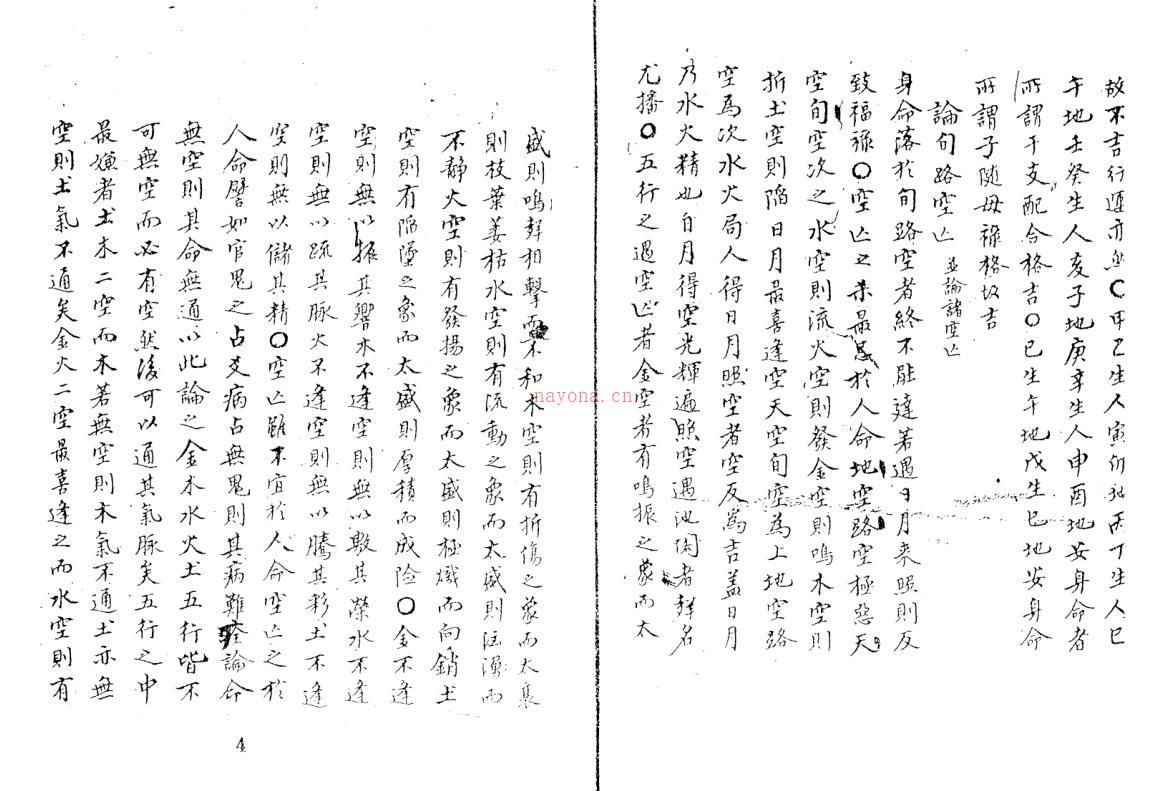 故不吉行運亦然○甲乙生人寅卯地丙丁生人巳
午地壬癸生人亥子地庚辛生人申酉地安身命者
所謂干支配合格吉○巳生午地戊生巳地安身命
所謂子随母祿格故吉
論旬路空亡 並論諸空亡
身命落於旬路空者終不能達若遇日月来照則反
致福祿○空亡之最忌於人命地空路空極惡天
空旬空次之水空則流火空則發金空則鳴木空則
折土空則陷日月最喜逢空天空旬空為上地空路
空為次水火局人得日月照空者空反為吉盖日月
乃水火精也日月得空光輝遍照空遇池閑者聲名
尤播○五行之遇空亡者金空者有鳴振之象而太
盛則鳴聲相擊而不和木空則有折傷之象而太衰
則枝葉萎枯水空則有流動之象而太盛則汪湧而
不静火空則有發揚之象而太盛則極熾而向銷土
空則有陷墮之象而太盛則厚積而成险○金不逢
空則無以振其響木不逢空則無以敷其榮水不逢
空則無以疏其脉火不逢空則無以騰其彩土不逢
空則無以儲其精○空亡雖不宜於人命空亡之於
人命譬如官鬼之占爻病占無鬼則其病難痊論命
無空則其命無通以此論之金木水火土五行皆不
可無空而必有空然後可以通其氣脉矣五行之中
最嫌者土木二空而木若無空則木氣不通土亦無
空則土氣不通矣金火二空最喜逢之而水空則有
4
nayona.cn